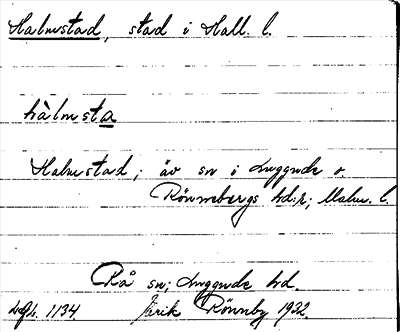 Halmstad, stad i Hall. l.
hàlmsta
Halmstad; äv sn i Luggude o.
Rönnebergs hd:r; Malm. l.
Rå sn; Luggude hd.
1134 Erik Rönnby 1932.